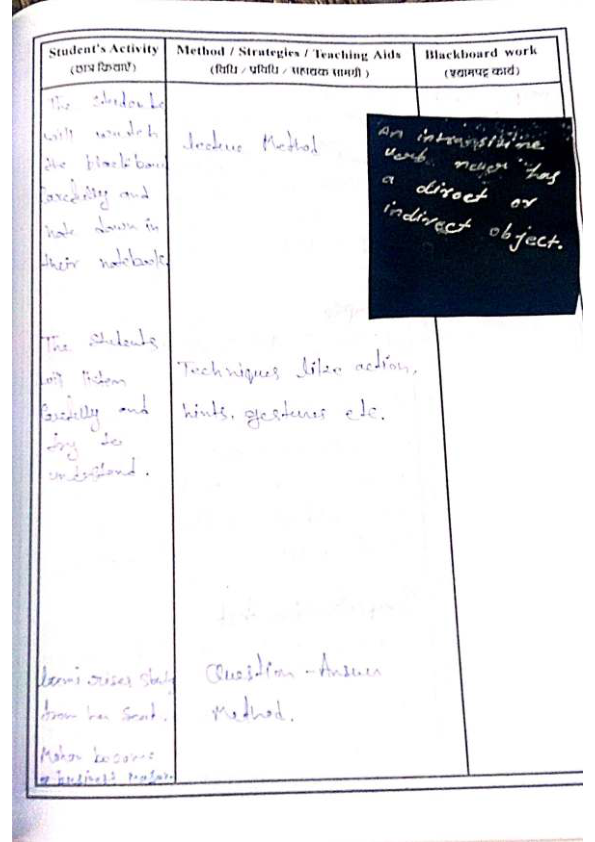 Student's Activity
(छात्र क्रियाएँ)
Method / Strategies / Teaching Aids
(विधि / प्रविधि / सहायक सामग्री)
Blackboard work
(श्यामपट्ट कार्य)
The
will
the blackboard
carefully and
note down in
their notebook
lecture Method
An intransitive
verb never has
a direct or
indirect object.
The students
will listen
carefully and
try to
understand.
Techniques like action,
hints, gestures etc.
rises
from her seat.
Mohan became
Question - Answer
Method.